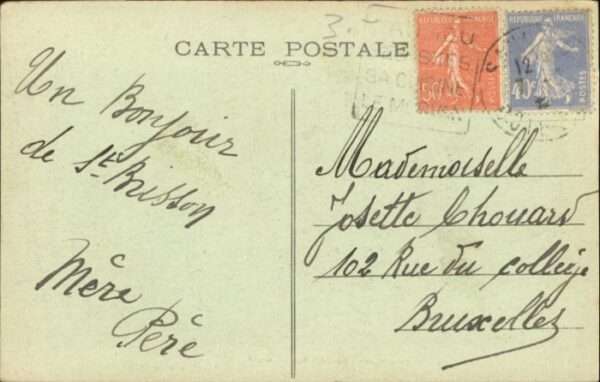 CARTE POSTALE
RÉPUBLIQUE FRANÇAISE
50c
RÉPUBLIQUE FRANÇAISE
40c
POSTES
Un Bonjour
de St. Brisson
Mère
Père
Mademoiselle
Josette Chouard
102 Rue du collège
Bruxelles